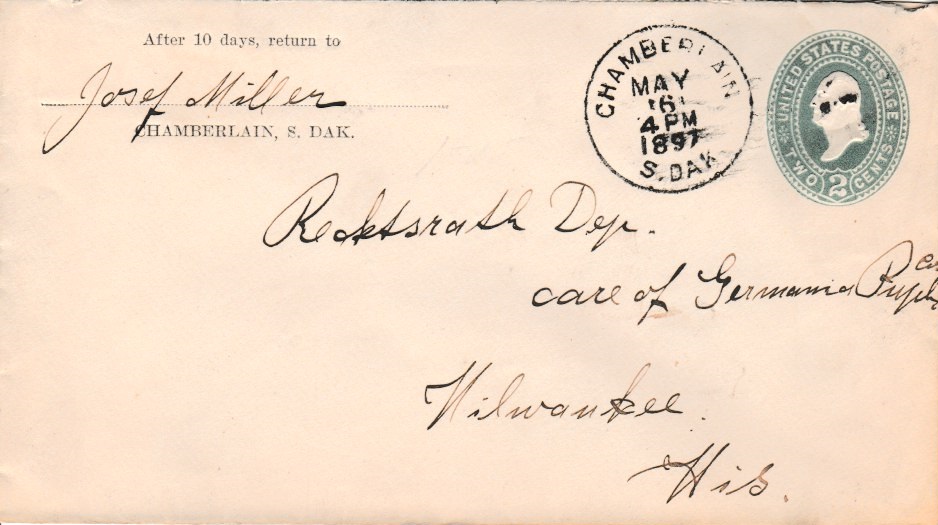 After 10 days, return to
Josef Miller
CHAMBERLAIN, S. DAK.
CHAMBERLAIN
MAY
6
4 PM
1897
S. DAK
UNITED STATES POSTAGE
TWO 2 CENTS
Recktsrath Dep.
care of Germania
Milwaukee.
Wis.